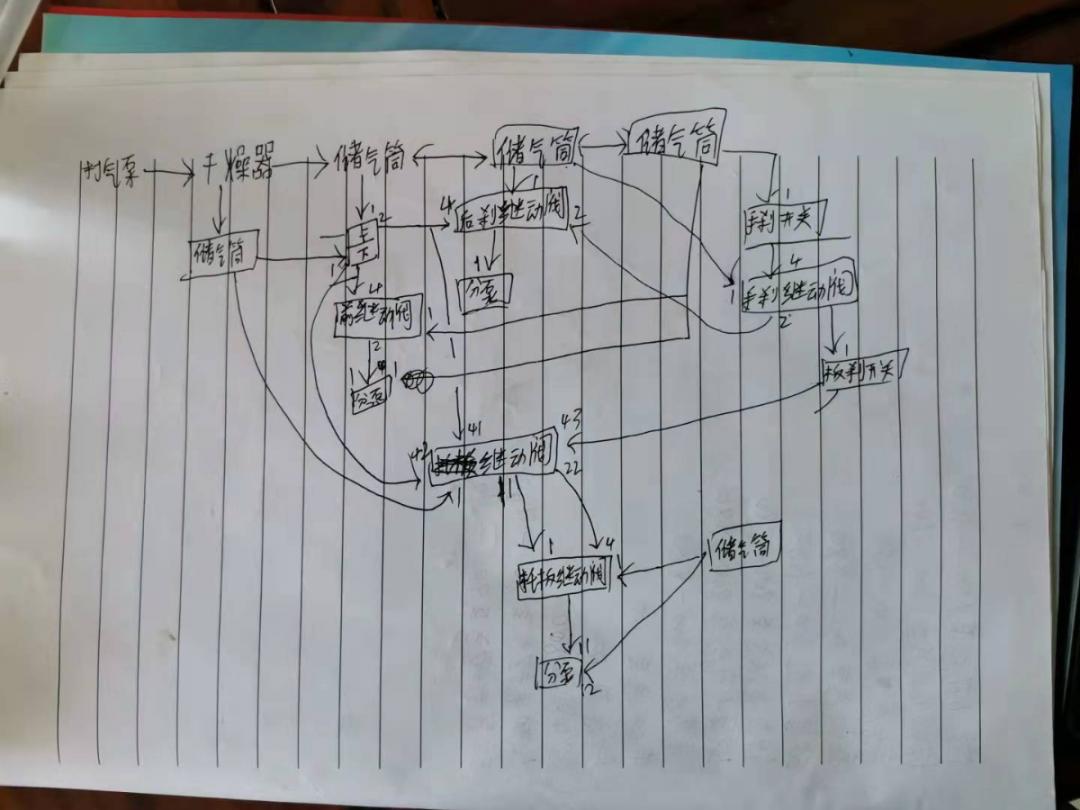 打气泵 干燥器 储气筒 储气筒 储气筒
储气筒
1
2
4
1
后刹继动阀
2
1
手刹开关
4
1
分泵
1
手刹继动阀
2
4
前继动阀
1
2
1
1
1
分泵
1
板刹开关
41
43
42
继动阀
22
1
1
1
4
托板继动阀
1
储气筒
11
分泵
12